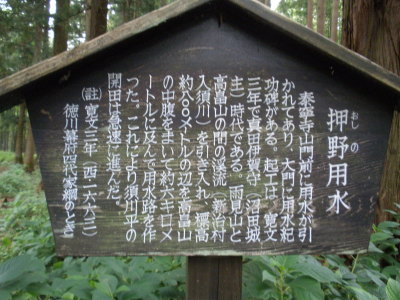 おしの
押野用水
泰寧寺山門前に用水が引
かれてあり、大門に用水紀
功碑がある。起工は、寛文
三年で真田伊賀守(沼田城
主)時代である。雨見山と
高畠山の間の渓流(新治村
入須川)を引き入れ、標高
八〇〇メートルの辺を高畠山
の中腹をまいて約六キロメ
ートルに及んで用水路を作
った。これにより須川平の
開田は急速に進んだ。
(註)寛文三年(西一六六三)
徳川幕府四代家綱のとき